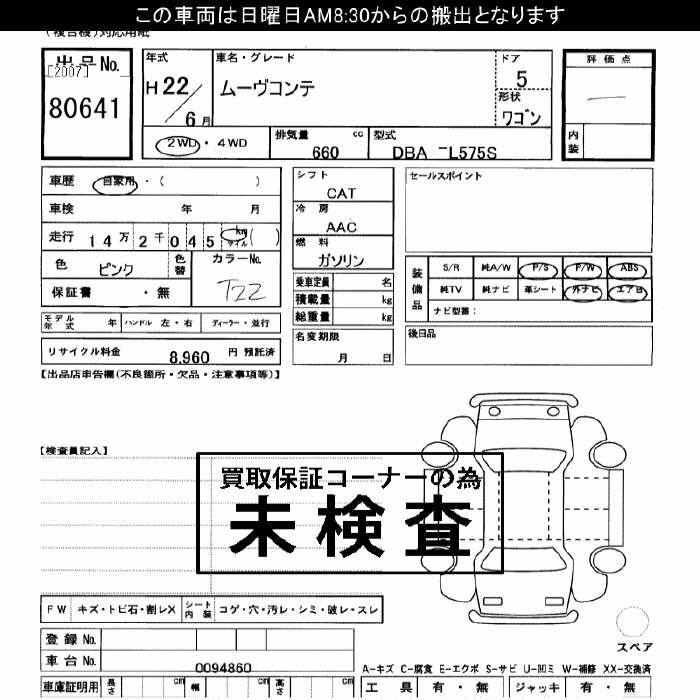 この車両は日曜日AM8:30からの搬出となります
(複合機)対応用紙
出品No.
[2007]
80641
年式
H22/6月
車名・グレード
ムーヴコンテ
ドア
5
形状
ワゴン
評価点
内装
2WD・4WD
排気量 cc
660
型式
DBA -L575S
車歴 自家用・( )
車検 年 月
走行 14万2千045 km マイル ( )
色 ピンク
色替
カラーNo.
T22
保証書 ・無
シフト
CAT
冷房
AAC
燃料
ガソリン
乗車定員 名
積載量 kg
総重量 kg
セールスポイント
装備品
S/R 純A/W P/S P/W ABS
純TV 純ナビ 革シート 外ナビ エアB
ナビ型番:
モデル年式 年 ハンドル 左・右 ディーラー・並行
リサイクル料金 8,960 円 預託済
名変期限
月 日
後日品
【出品店申告欄(不良箇所・欠品・注意事項等)】
【検査員記入】
買取保証コーナーの為
未検査
FW キズ・トビ石・割レX シート内装 コゲ・穴・汚レ・シミ・破レ・スレ
登録No.
車台No. 0094860
スペア
A-キズ C-腐食 E-エクボ S-サビ U-凹ミ W-補修 XX-交換済
車庫証明用 長さ cm 幅 cm 高さ cm
工具 有・無 ジャッキ 有・無